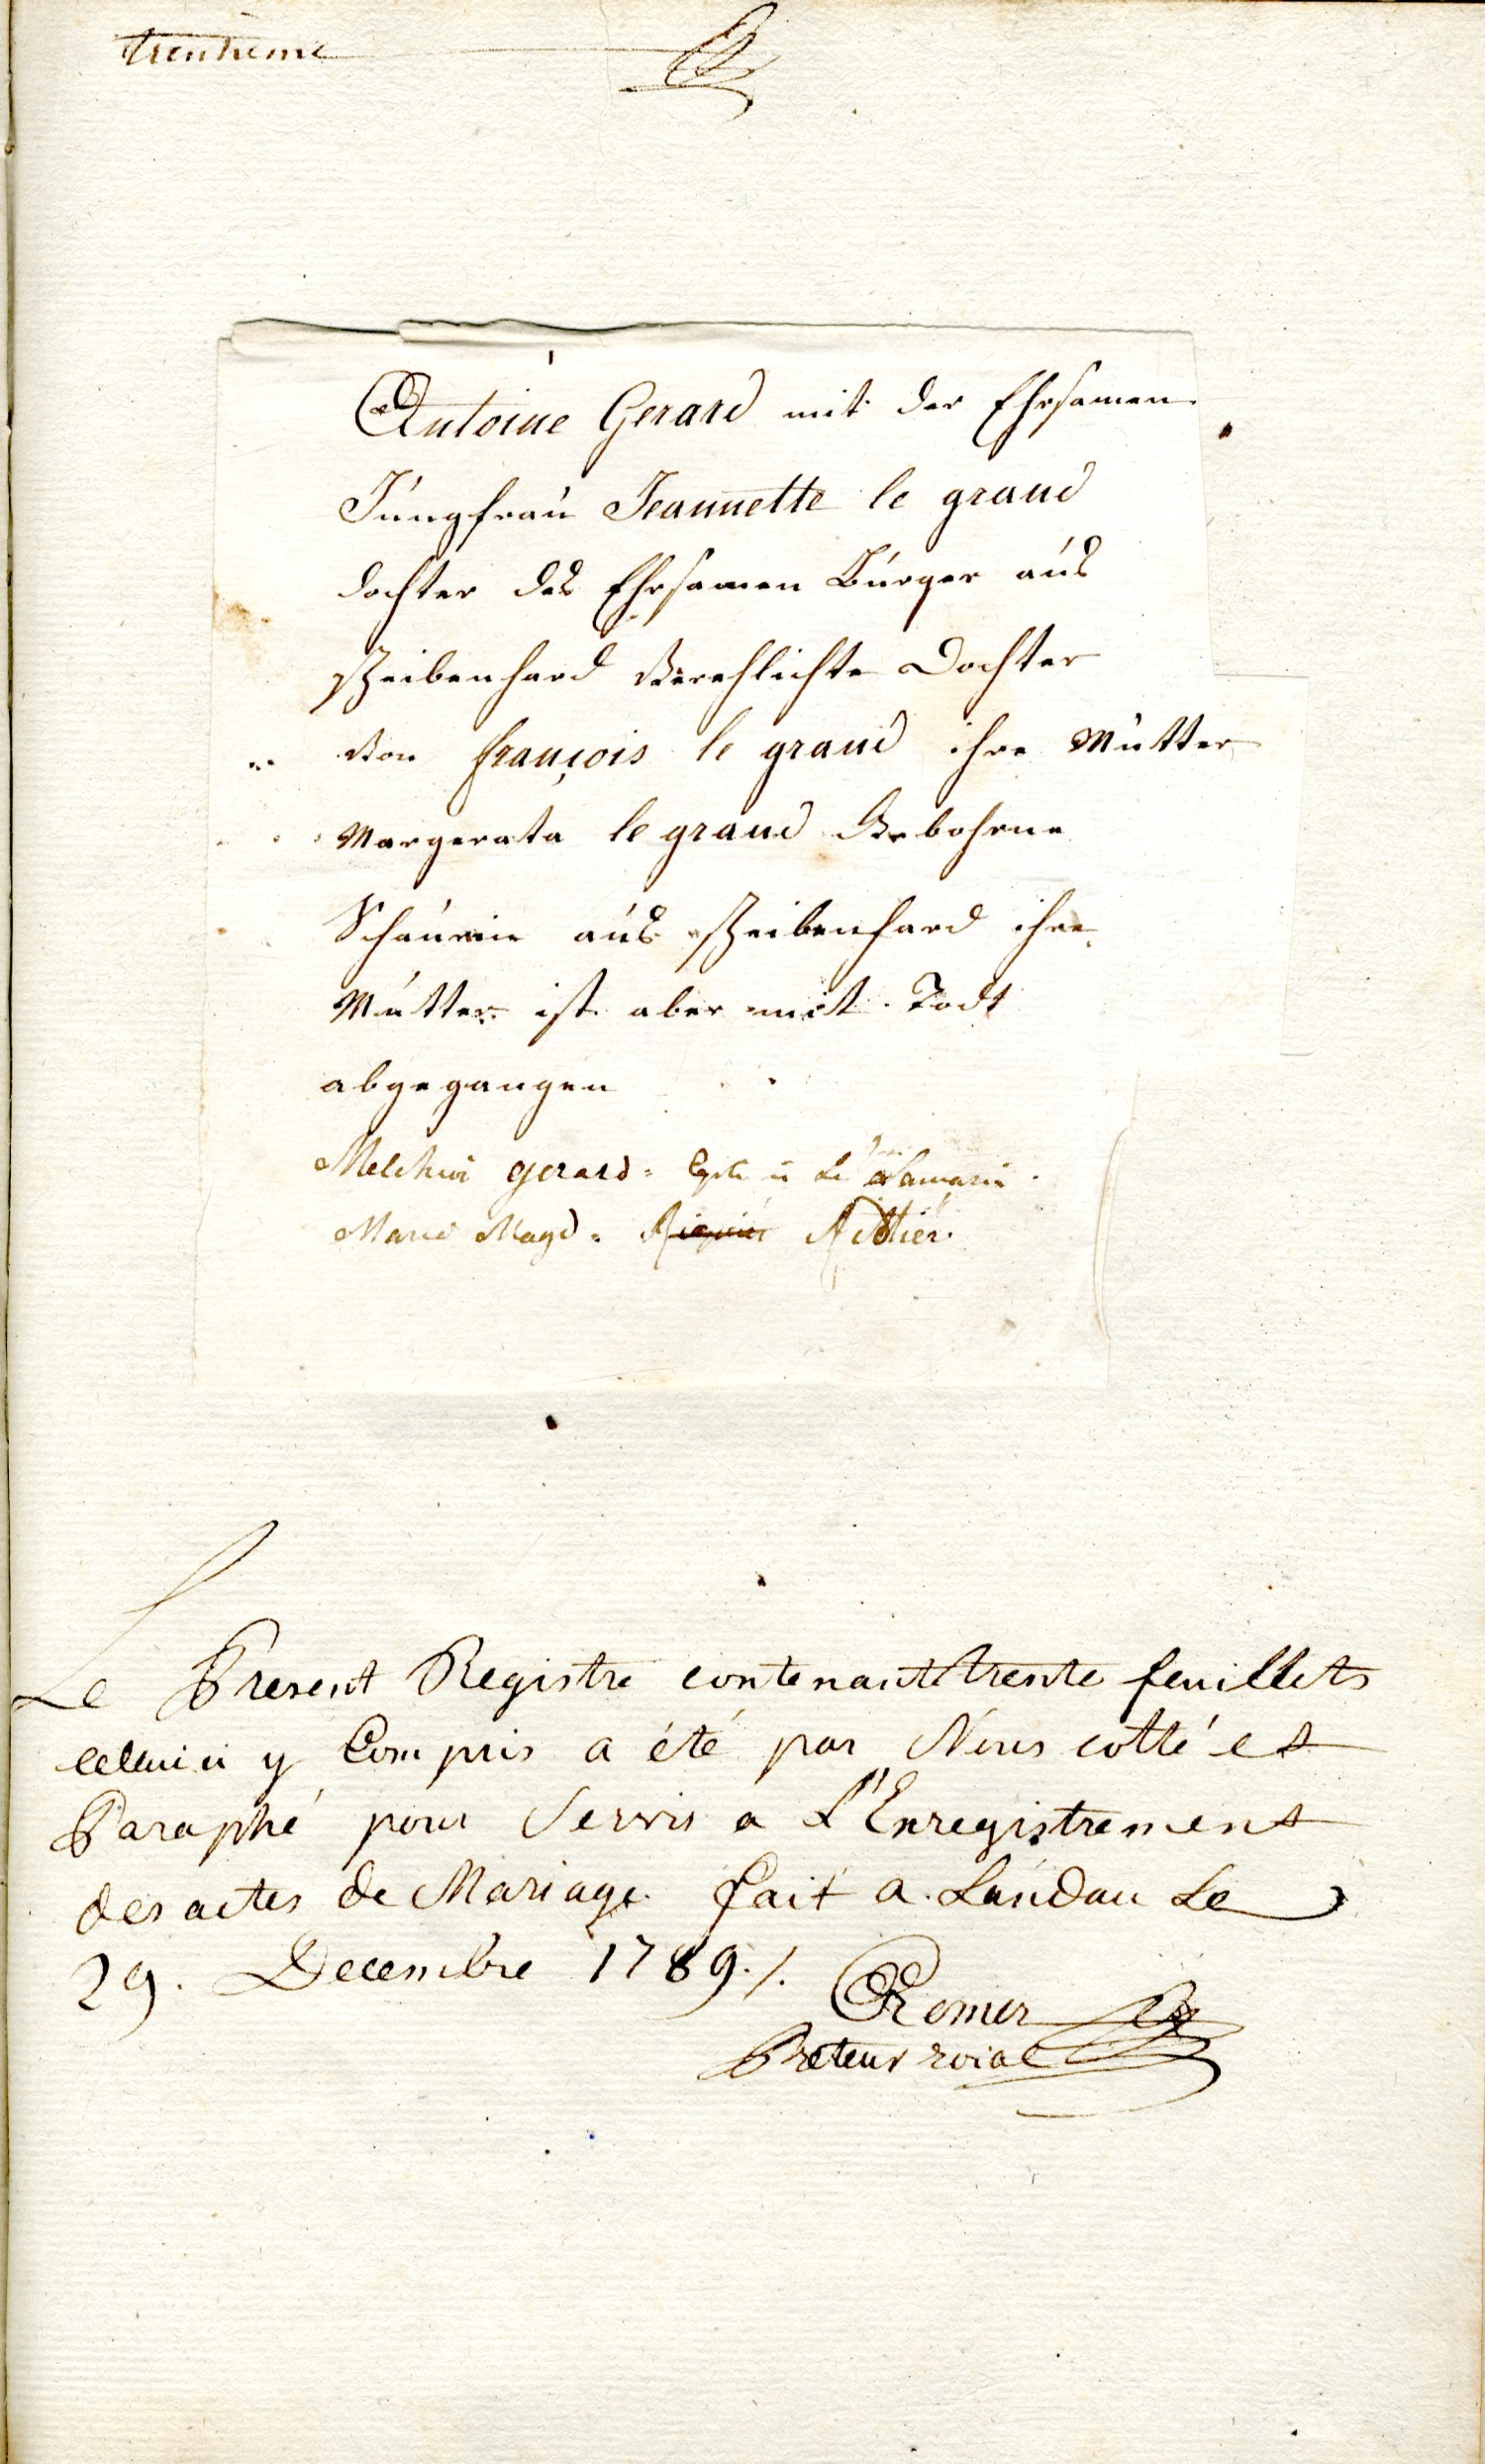 trentieme
Antoine Gerard mit der Ehrsamen
Jungfrau Jeannette le grand
dochter des Ehrsamen Bürger aus
Scheibenhard Verehlichte Dochter
von françois le grand ihre Mutter
Margerata le grand Gebohrne
aus Scheibenhard ihre
Mutter ist aber mit Todt
abgegangen
Melchior gerard =
Marie Magd =
Le Present Registre contenant trente feuillets
celui ci y Compris a été par Nous cotté et
Paraphé pour Servir a L'Enregistrement
des actes de Mariage. fait a Landau Le
29. Decembre 1789./.
Romer
Preteur roial